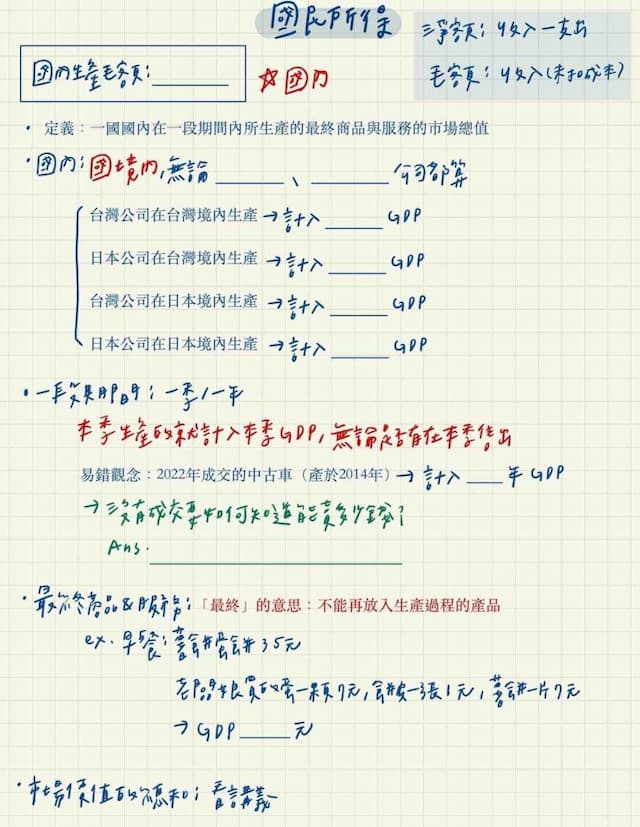 國民所得
淨額：收入－支出
毛額：收入(未扣成本)
國內生產毛額：________
☆國內
• 定義：一國國內在一段期間內所生產的最終商品與服務的市場總值
• 國內：國境內,無論______、______公司都算
台灣公司在台灣境內生產 → 計入______GDP
日本公司在台灣境內生產 → 計入______GDP
台灣公司在日本境內生產 → 計入______GDP
日本公司在日本境內生產 → 計入______GDP
• 一段期間：一季/一年
本季生產的就計入本季GDP,無論是否有在本季售出
易錯觀念：2022年成交的中古車（產於2014年）→ 計入____年GDP
→ 沒有成交要如何知道能賣多少錢？
Ans.____________
• 最終產品&服務：「最終」的意思：不能再放入生產過程的產品
ex. 早餐：薯餅蛋餅35元
老闆娘買的蛋一顆7元,餅皮一張1元,薯餅一片7元
→ GDP______元
• 市場價值的總和：看講義